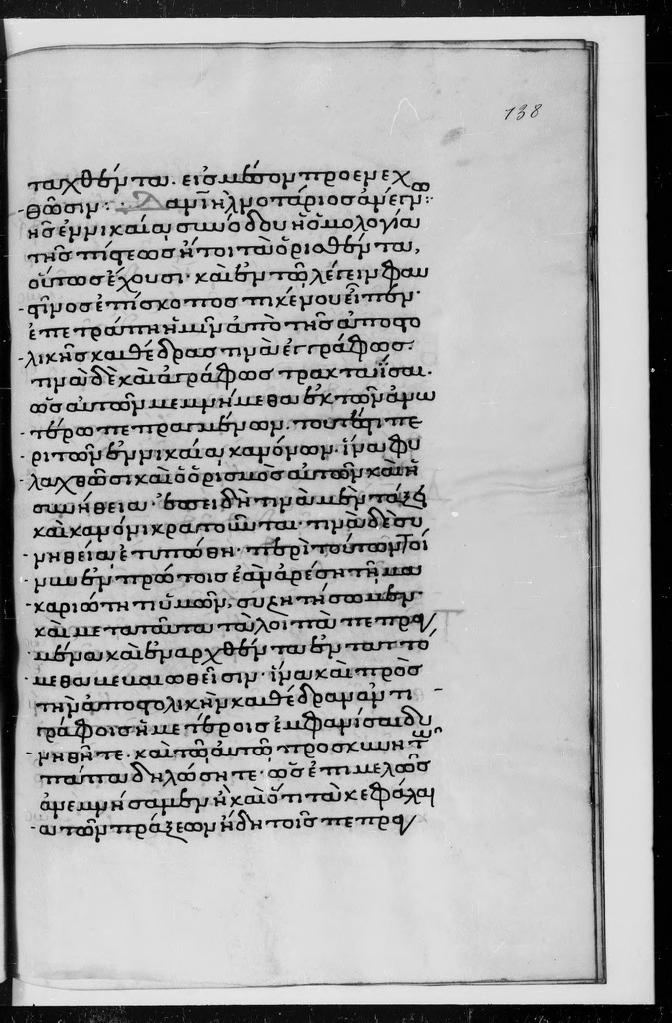 138
ταχθέντα. εἰς μέσον προενεχ
θῶσιν: Δανιὴλ νοτάριος ἀνέγνω:
ἡ ἐν νικαίᾳ συνόδου ἡ ὁμολογία
τῆς πίστεως ἤτοι τὰ ὁρισθέντα,
οὕτως ἔχουσι· καὶ ἐν τῷ λέγειν φαυ
στῖνος ἐπίσκοπος πικένου εἶπεν·
ἐπετράπη ἡμῖν ἀπὸ τῆς ἀποστο
λικῆς καθέδρας τινὰ ἐγγράφως.
τινὰ δὲ καὶ ἀγράφως τρακταΐσαι.
ὡς αὐτῶν μεμνήμεθα ἐκ τῶν ἀνω
τέρω πεπραγμένων. τουτέστι πε
ρὶ τῶν ἐν νικαίᾳ κανόνων. ἵνα φυ
λαχθῶσι καὶ ὁ ὁρισμὸς αὐτῶν καὶ ἡ
συνήθεια· ἐπειδὴ τινὰ μὲν τάξει
καὶ κανόνι κρατοῦνται· τινὰ δὲ συ
νηθείᾳ ἐτυπώθη· περὶ τούτων τοί
νυν ἐν πρώτοις ἐὰν ἀρέσῃ τῇ μα
καριότητι ὑμῶν, συζητήσωμεν·
καὶ μετὰ ταῦτα τὰ λοιπὰ πεπρα
μένα καὶ ἐναρχθέντα
μεθα βεβαιωθεῖσιν· ἵνα καὶ πρὸς
τὴν ἀποστολικὴν καθέδραν ἀντι
γράφοις ἡμετέροις ἐμφανίσαι δυ
νηθῆτε· καὶ τῷ αὐτῷ προσκυνητῷ
πάπᾳ δηλώσητε· ὡς ἐπιμελῶς
ἀνεμνήσαμεν ἢ καὶ ὅτι τὰ κεφάλαι
α τῶν πράξεων ἤδη τοῖς πεπρα